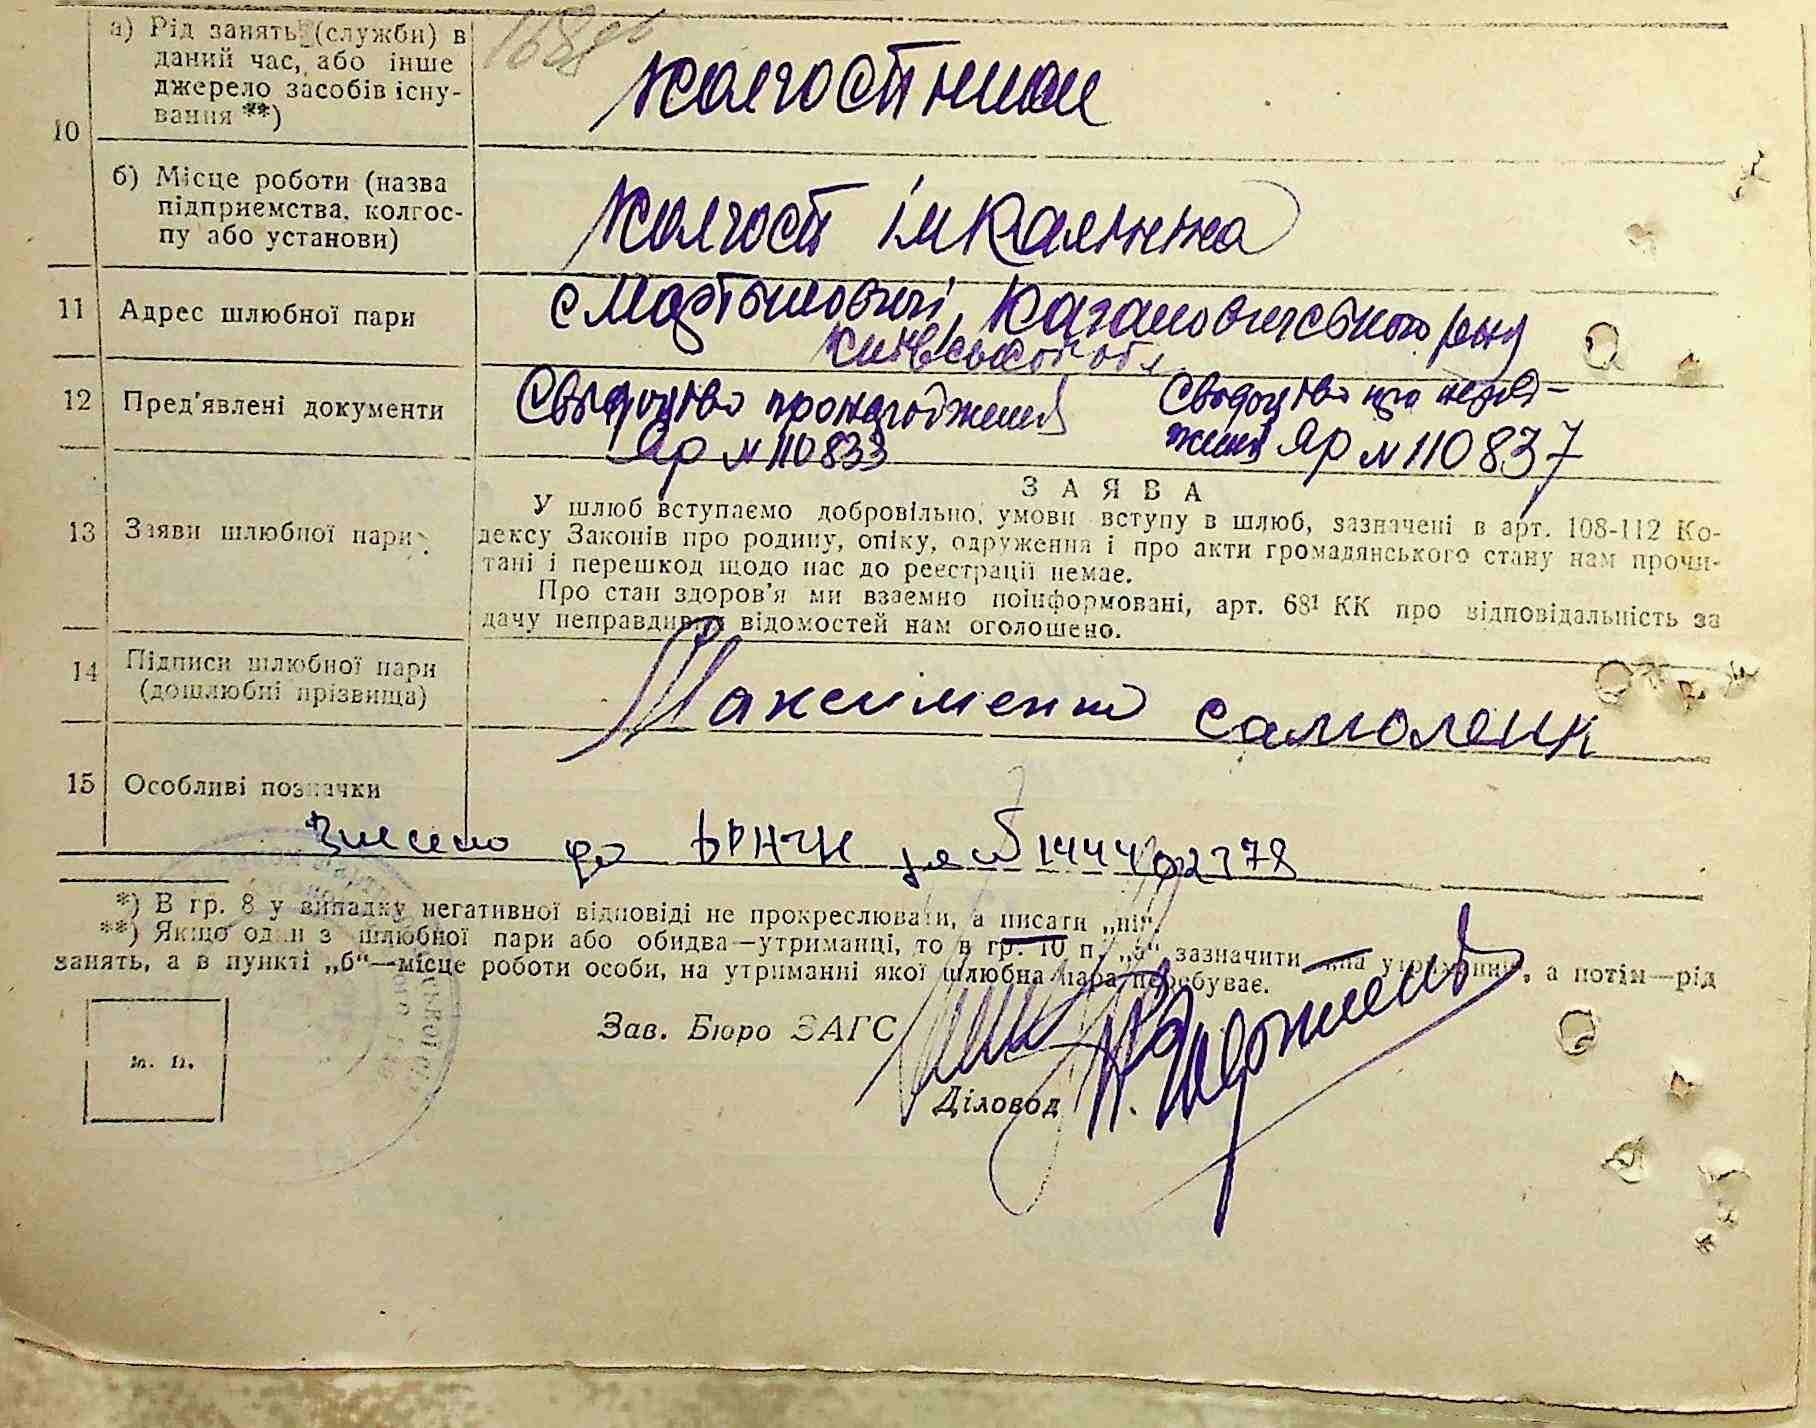 а) Рід занять (служби) в
даний час, або інше
джерело засобів існу-
вання **)
колгоспники
10
б) Місце роботи (назва
підприємства, колгос-
пу або установи)
колгосп ім Калініна
11 Адрес шлюбної пари
с Мартиновичі, Кагановичського р-ну
Київської обл
12 Пред'явлені документи
Свідоцтво про народження
Яр № 110833
Свідоцтво про народ-
ження Яр № 110837
13 Заяви шлюбної пари
ЗАЯВА
У шлюб вступаємо добровільно, умови вступу в шлюб, зазначені в арт. 108-112 Ко-
дексу Законів про родину, опіку, одруження і про акти громадянського стану нам прочи-
тані і перешкод щодо нас до реєстрації немає.
Про стан здоров'я ми взаємно поінформовані, арт. 68¹ КК про відповідальність за
дачу неправдивих відомостей нам оголошено.
14 Підписи шлюбної пари
(дошлюбні прізвища)
Максименко Самоленк
15 Особливі позначки
Внесено до ДРАЦС за № 00102778
*) В гр. 8 у випадку негативної відповіді не прокреслювати, а писати „ні“.
**) Якщо один з шлюбної пари або обидва—утриманці, то в гр. 10 п. „а“ зазначити „на утриманні“, а потім—рід
занять, а в пункті „б“—місце роботи особи, на утриманні якої шлюбна пара перебуває.
Зав. Бюро ЗАГС
Діловод
м. п.